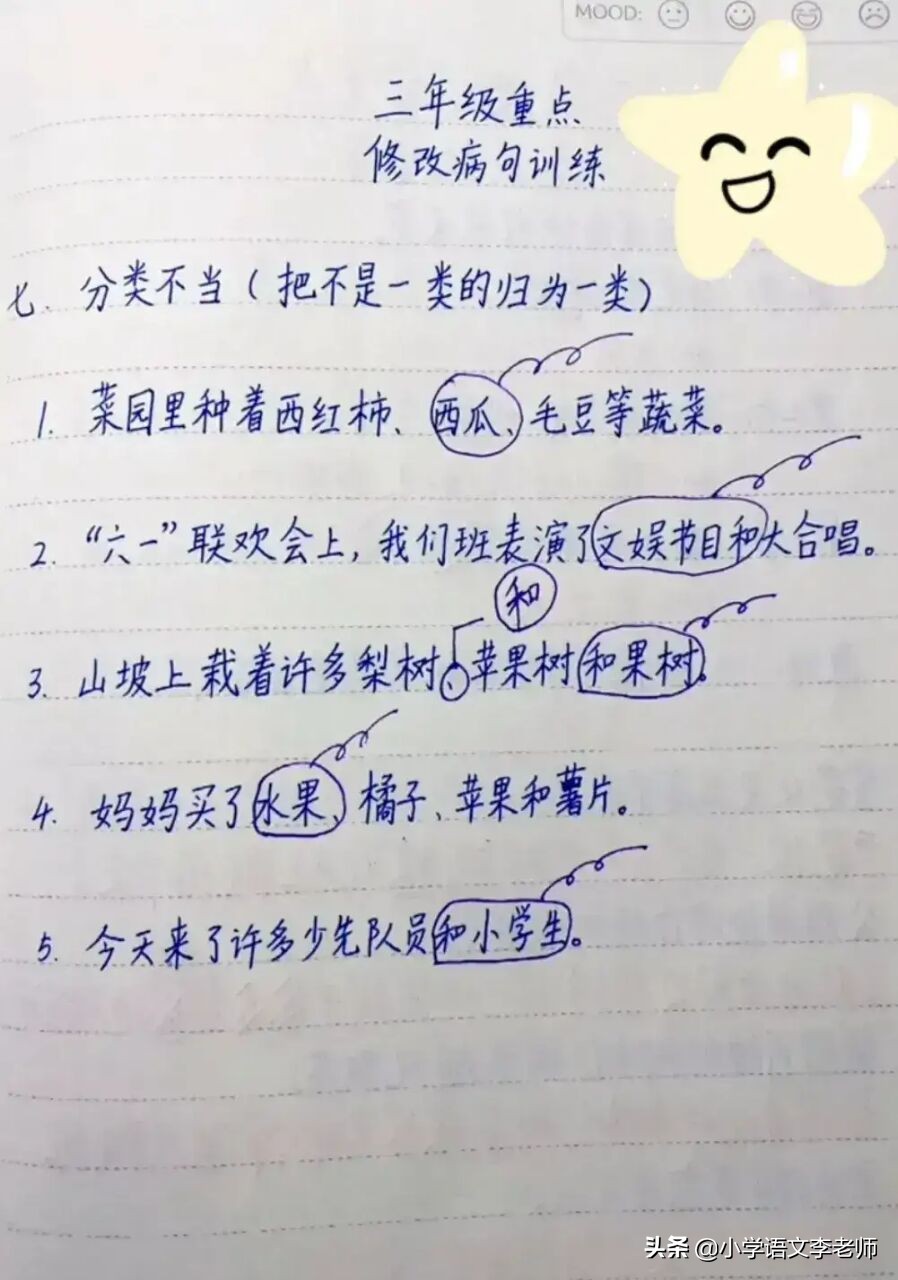 MOOD:
三年级重点
修改病句训练
七、分类不当(把不是一类的归为一类)
1. 菜园里种着西红柿、西瓜、毛豆等蔬菜。
2. “六一”联欢会上,我们班表演了文娱节目和大合唱。
和
3. 山坡上栽着许多梨树、苹果树和果树。
4. 妈妈买了水果、橘子、苹果和薯片。
5. 今天来了许多少先队员和小学生。
头条 @小学语文李老师